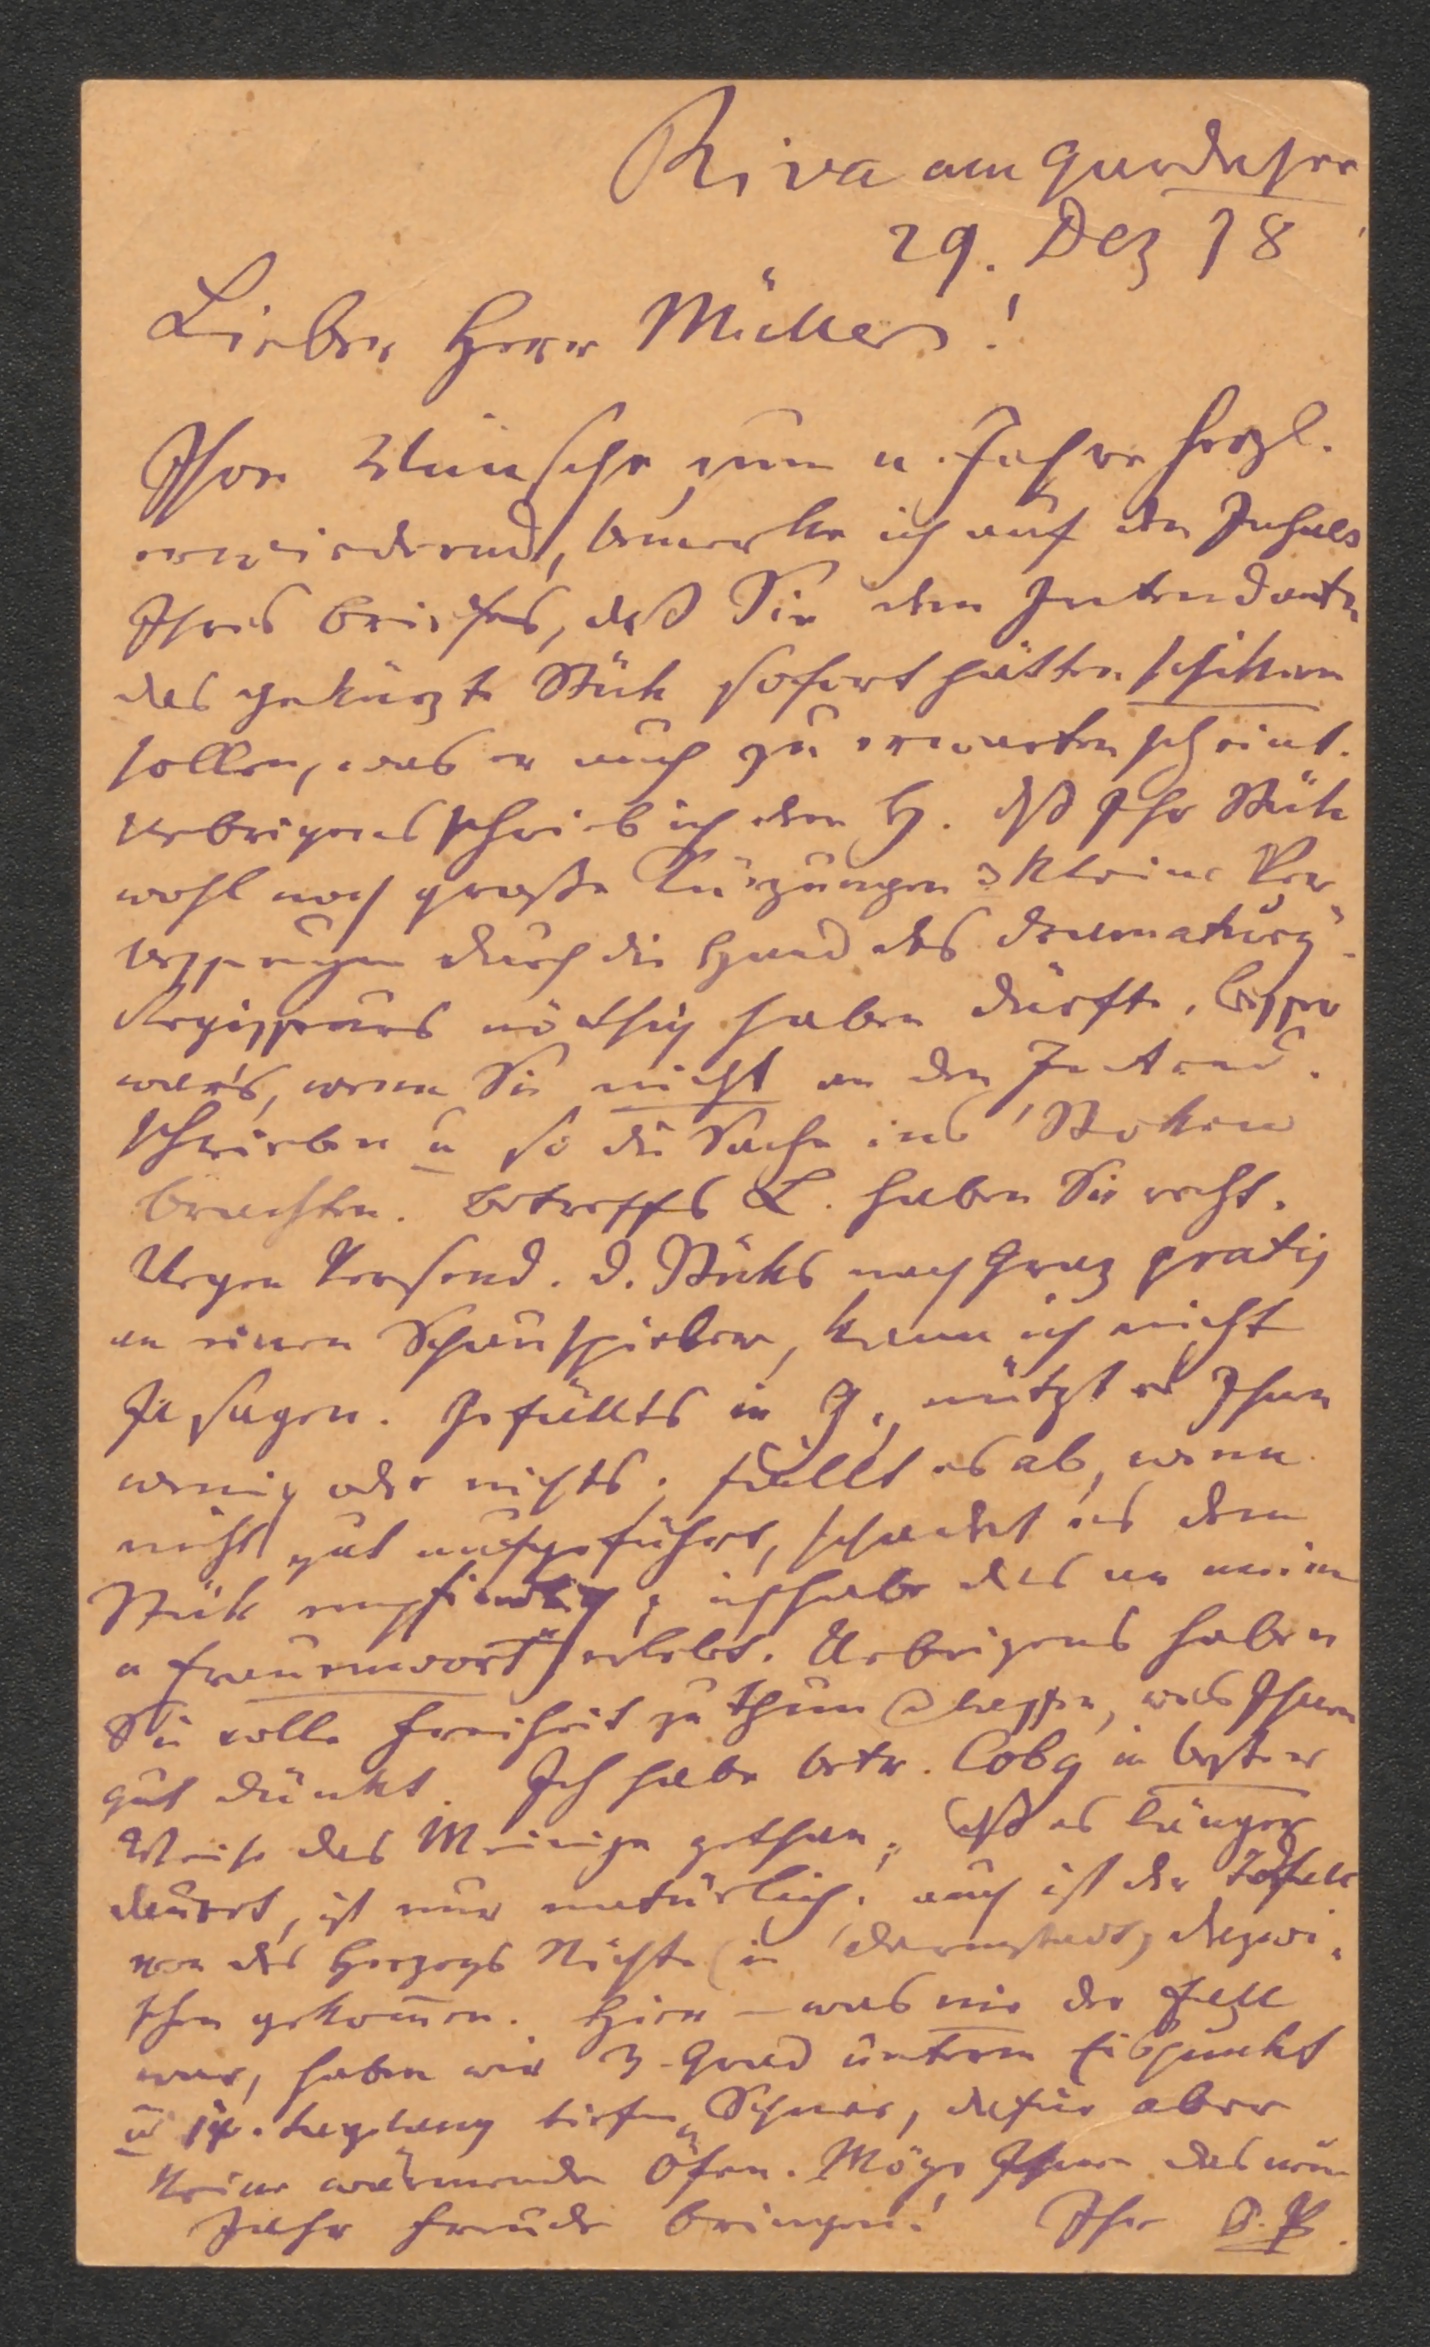 Riva am Gardasee
29. Dez 78
Lieber Herr Müller!
Ihre Wünsche zum n. Jahre herzl.
erwiedernd, bemerke ich auf den Inhalt
Ihres Briefes, daß Sie dem Intendanten
das gekürzte Stük sofort hätten schiken
sollen, was er auch zu erwarten scheint.
Uebrigens schrieb ich dem H. dß Ihr Stük
wohl noch große Kürzungen & kleine Ver-
besserungen durch die Hand des Dramaturg-
Regisseurs nöthig haben dürfte. Besser
wär's, wenn Sie nicht an den Intend.
schrieben u so die Sache ins Stoken
brachten. Betreffs L. haben Sie recht.
Wegen Versend. d. Stüks nach Graz gratis
an einen Schauspieler, kann ich nicht
Ja sagen. Gefällts in G., nützt es Ihnen
wenig oder nichts; fällt es ab, wenn
nicht gut aufgeführt, schadet es dem
Stük empfindlich; ich habe das an mein
"Frauenwort" erlebt. Uebrigens haben
Sie volle Freiheit zu thun & lassen, was Ihnen
gut dünkt. Ich habe betr. Cobg in bester
Weise das Meinige gethan; dß es länger
dauert, ist nur natürlich. auch ist der Todfall
von des Herzogs Nichte (in Darmstadt) dazwi-
schen gekommen. Hier – was nie der Fall
war, haben wir 3 Grad unterm Eispunkt
u tiefen Schnee, dafür aber
keine wärmende Öfen. Möge Ihnen das neue
Jahr Freude bringen! Ihr